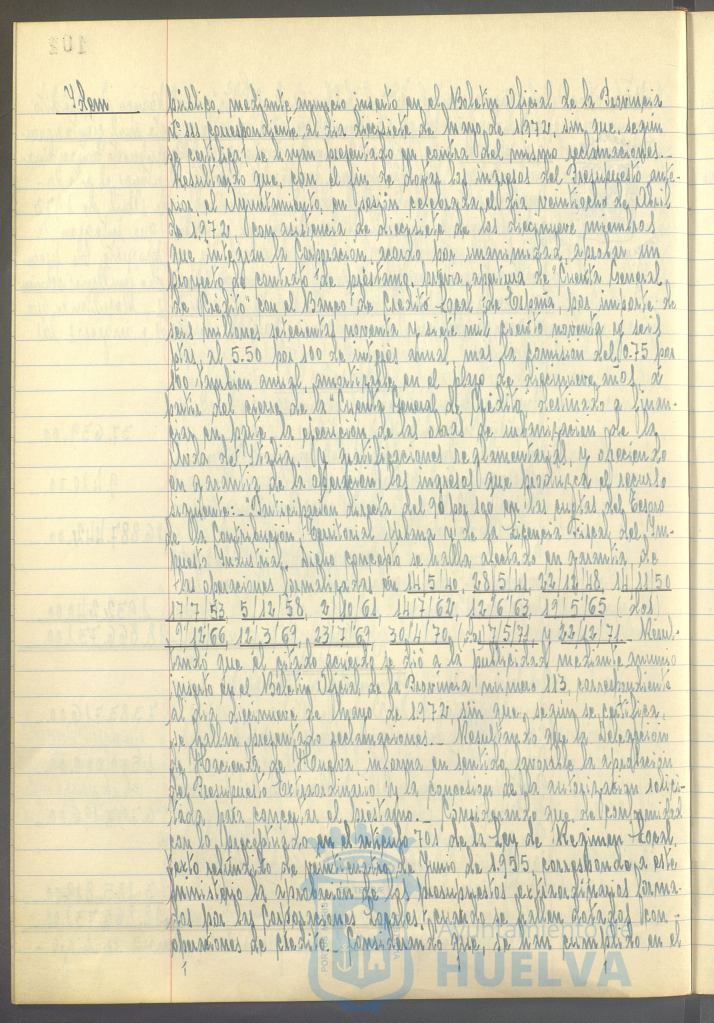 Idem público, mediante anuncio inserto en el Boletín Oficial de la Provincia
nº 111 correspondiente al día diecisiete de mayo de 1972, sin que, según
se certifica, se hayan presentado en contra del mismo reclamaciones.-
Resultando que, con el fin de dotar los ingresos del Presupuesto ante-
rior, el Ayuntamiento, en sesión celebrada el día veintiocho de Abril
de 1972, con asistencia de diecisiete de los diecinueve miembros
que integran la Corporación, acordó por unanimidad, aprobar un
proyecto de contrato de préstamo, previa apertura de "Cuenta General
de Crédito" con el Banco de Crédito Local de España, por importe de
seis millones setecientas noventa y siete mil ciento noventa y seis
ptas, al 5.50 por 100 de interés anual, más la comisión del 0.75 por
100 también anual, amortizable en el plazo de diecinueve años, a
partir del cierre de la "Cuenta General de Crédito", destinado a finan-
ciar en parte la ejecución de las obras de urbanización de la
de gratificaciones reglamentarias, y ofreciendo
en garantía de la operación los ingresos que produzca el recurso
siguiente:- "Participación directa del 90 por 100 en las cuotas del Tesoro
de la Contribución Territorial Urbana y de la Licencia Fiscal del Im-
puesto Industrial", dicho concepto se halla afectado en garantía de
las operaciones formalizadas en 14/5/40, 28/5/41, 22/12/48, 14/11/50
17/7/53, 5/12/58, 2/10/61, 14/7/62, 12/6/63, 19/5/65 (dos)
9/12/66, 12/3/69, 23/7/69, 30/4/70, 7/5/71, y 22/12/71.- Resul-
tando que el citado acuerdo se dió a la publicidad mediante anuncio
inserto en el Boletín Oficial de la Provincia número 113, correspondiente
al día diecinueve de mayo de 1972 sin que, según se certifica,
se hallan presentado reclamaciones.- Resultando que la Delegación
de Hacienda de Huelva informa en sentido favorable la aprobación
del Presupuesto Extraordinario y la concesión de la autorización solici-
tada para concertar el préstamo.- Considerando que de conformidad
con lo preceptuado en el artículo 701 de la Ley de Régimen Local,
texto refundido de veinticuatro de Junio de 1955, corresponde a este
Ministerio la aprobación de los presupuestos extraordinarios forma-
dos por las Corporaciones Locales, cuando se hallen dotados con
operaciones de crédito.- Considerando que, se han cumplido en el
Ayuntamiento de
HUELVA